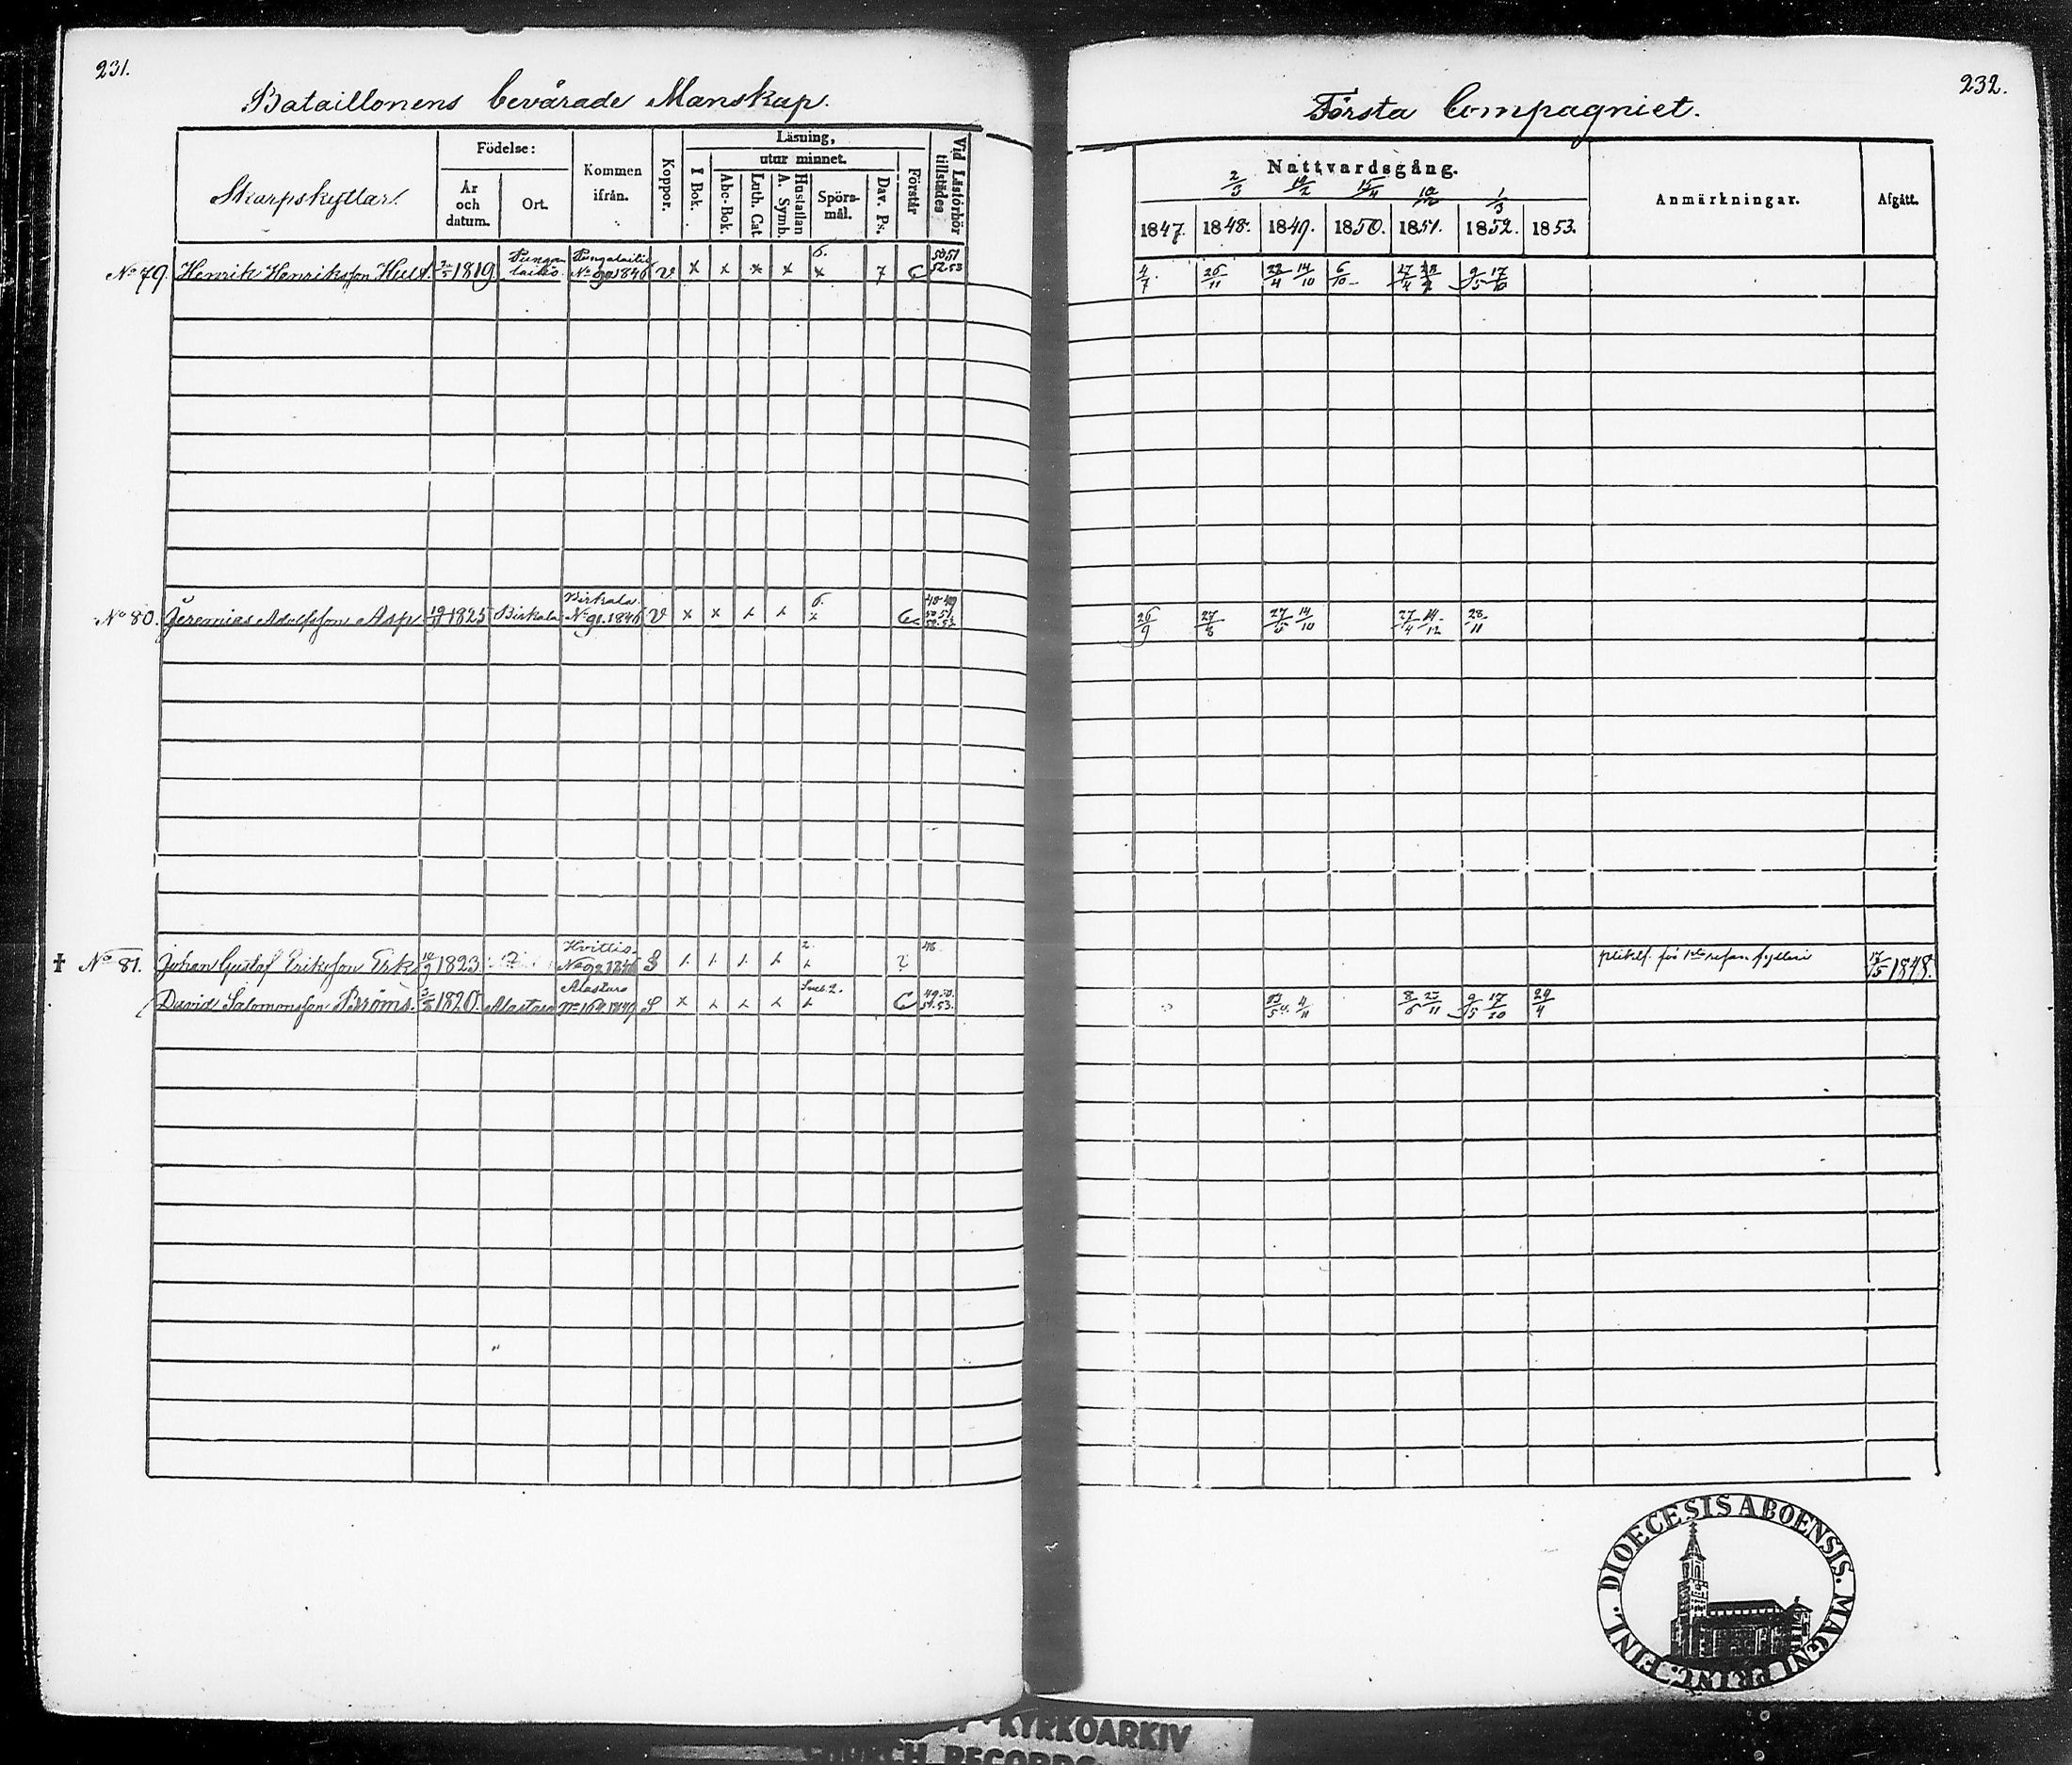 231.
Bataillonens bevärade Manskap.
Skarpskyttar.
Födelse:
År och datum.
Ort.
Kommen ifrån.
Koppor.
Läsning,
I Bok.
utur minnet.
Abc-Bok.
Luth. Cat.
A. Symb.
Hustaflan
Spörs-mål.
Dav. Ps.
Förstår
Vid Läsförhör tillstädes
No 79. Henrik Henriksson Hult. 1819 Pungalaitio Pungalaitio No 90 1846 V x x x x 6. x 7 C 50 51 52 53
No 80. Jeremias Adolfsson Asp 1825 Birkala Birkala No 91. 1846 V x x x x 6. x 48 49 50 51 52 53
† No 81. Johan Gustaf Eriksson Ek 1823 Hvittis No 92 1846 S 2. 48
David Salomonsson Ströms. 1820. Alastaro Alastaro No 162 1849 S x x x x 2. C 49. 50. 51. 53.
232.
Första Compagniet.
Nattvardsgång.
2/3 15/4 1/3
1847. 1848. 1849. 1850. 1851. 1852. 1853.
Anmärkningar.
Afgått.
4/7 26/11 22/4 14/10 6/10 27/4 9/5 17/10
26/9 27/8 27/5 14/10 27/4 14/12 28/11
för 1sta resan fylleri 17/5 1848.
4/11 8/6 25/11 9/5 17/10 24/4
DIOECESIS ABOENSIS. MAGNI PRINC. FINL.
KYRKOARKIV
CHURCH RECORDS